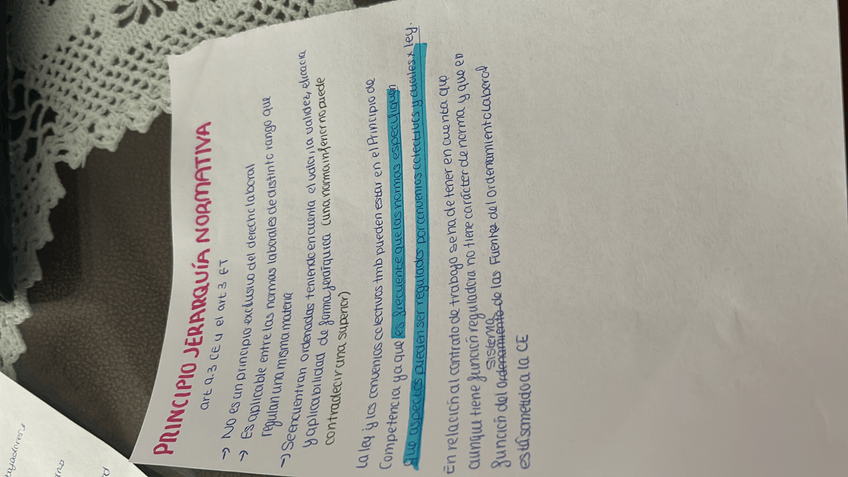 PRINCIPIO JERARQUÍA NORMATIVA
art 9.3 CE y el art 3 ET
→ NO es un principio exclusivo del derecho laboral
→ Es aplicable entre las normas laborales de distinto rango que
regulan una misma materia
→ Se encuentran ordenadas teniendo en cuenta el valor, la validez, eficacia
y aplicabilidad de forma jerárquica (una norma inferior no puede
contradecir una superior)
La ley y los convenios colectivos tmb pueden estar en el Principio de
Competencia ya que es frecuente que las normas especifiquen
que aspectos pueden ser regulados por convenios colectivos y cuales x ley.
En relación al contrato de trabajo se ha de tener en cuenta que
aunque tiene función reguladora no tiene carácter de norma y que en
función del ordenamiento sistema de las Fuentes del Ordenamiento laboral
está sometido a la CE